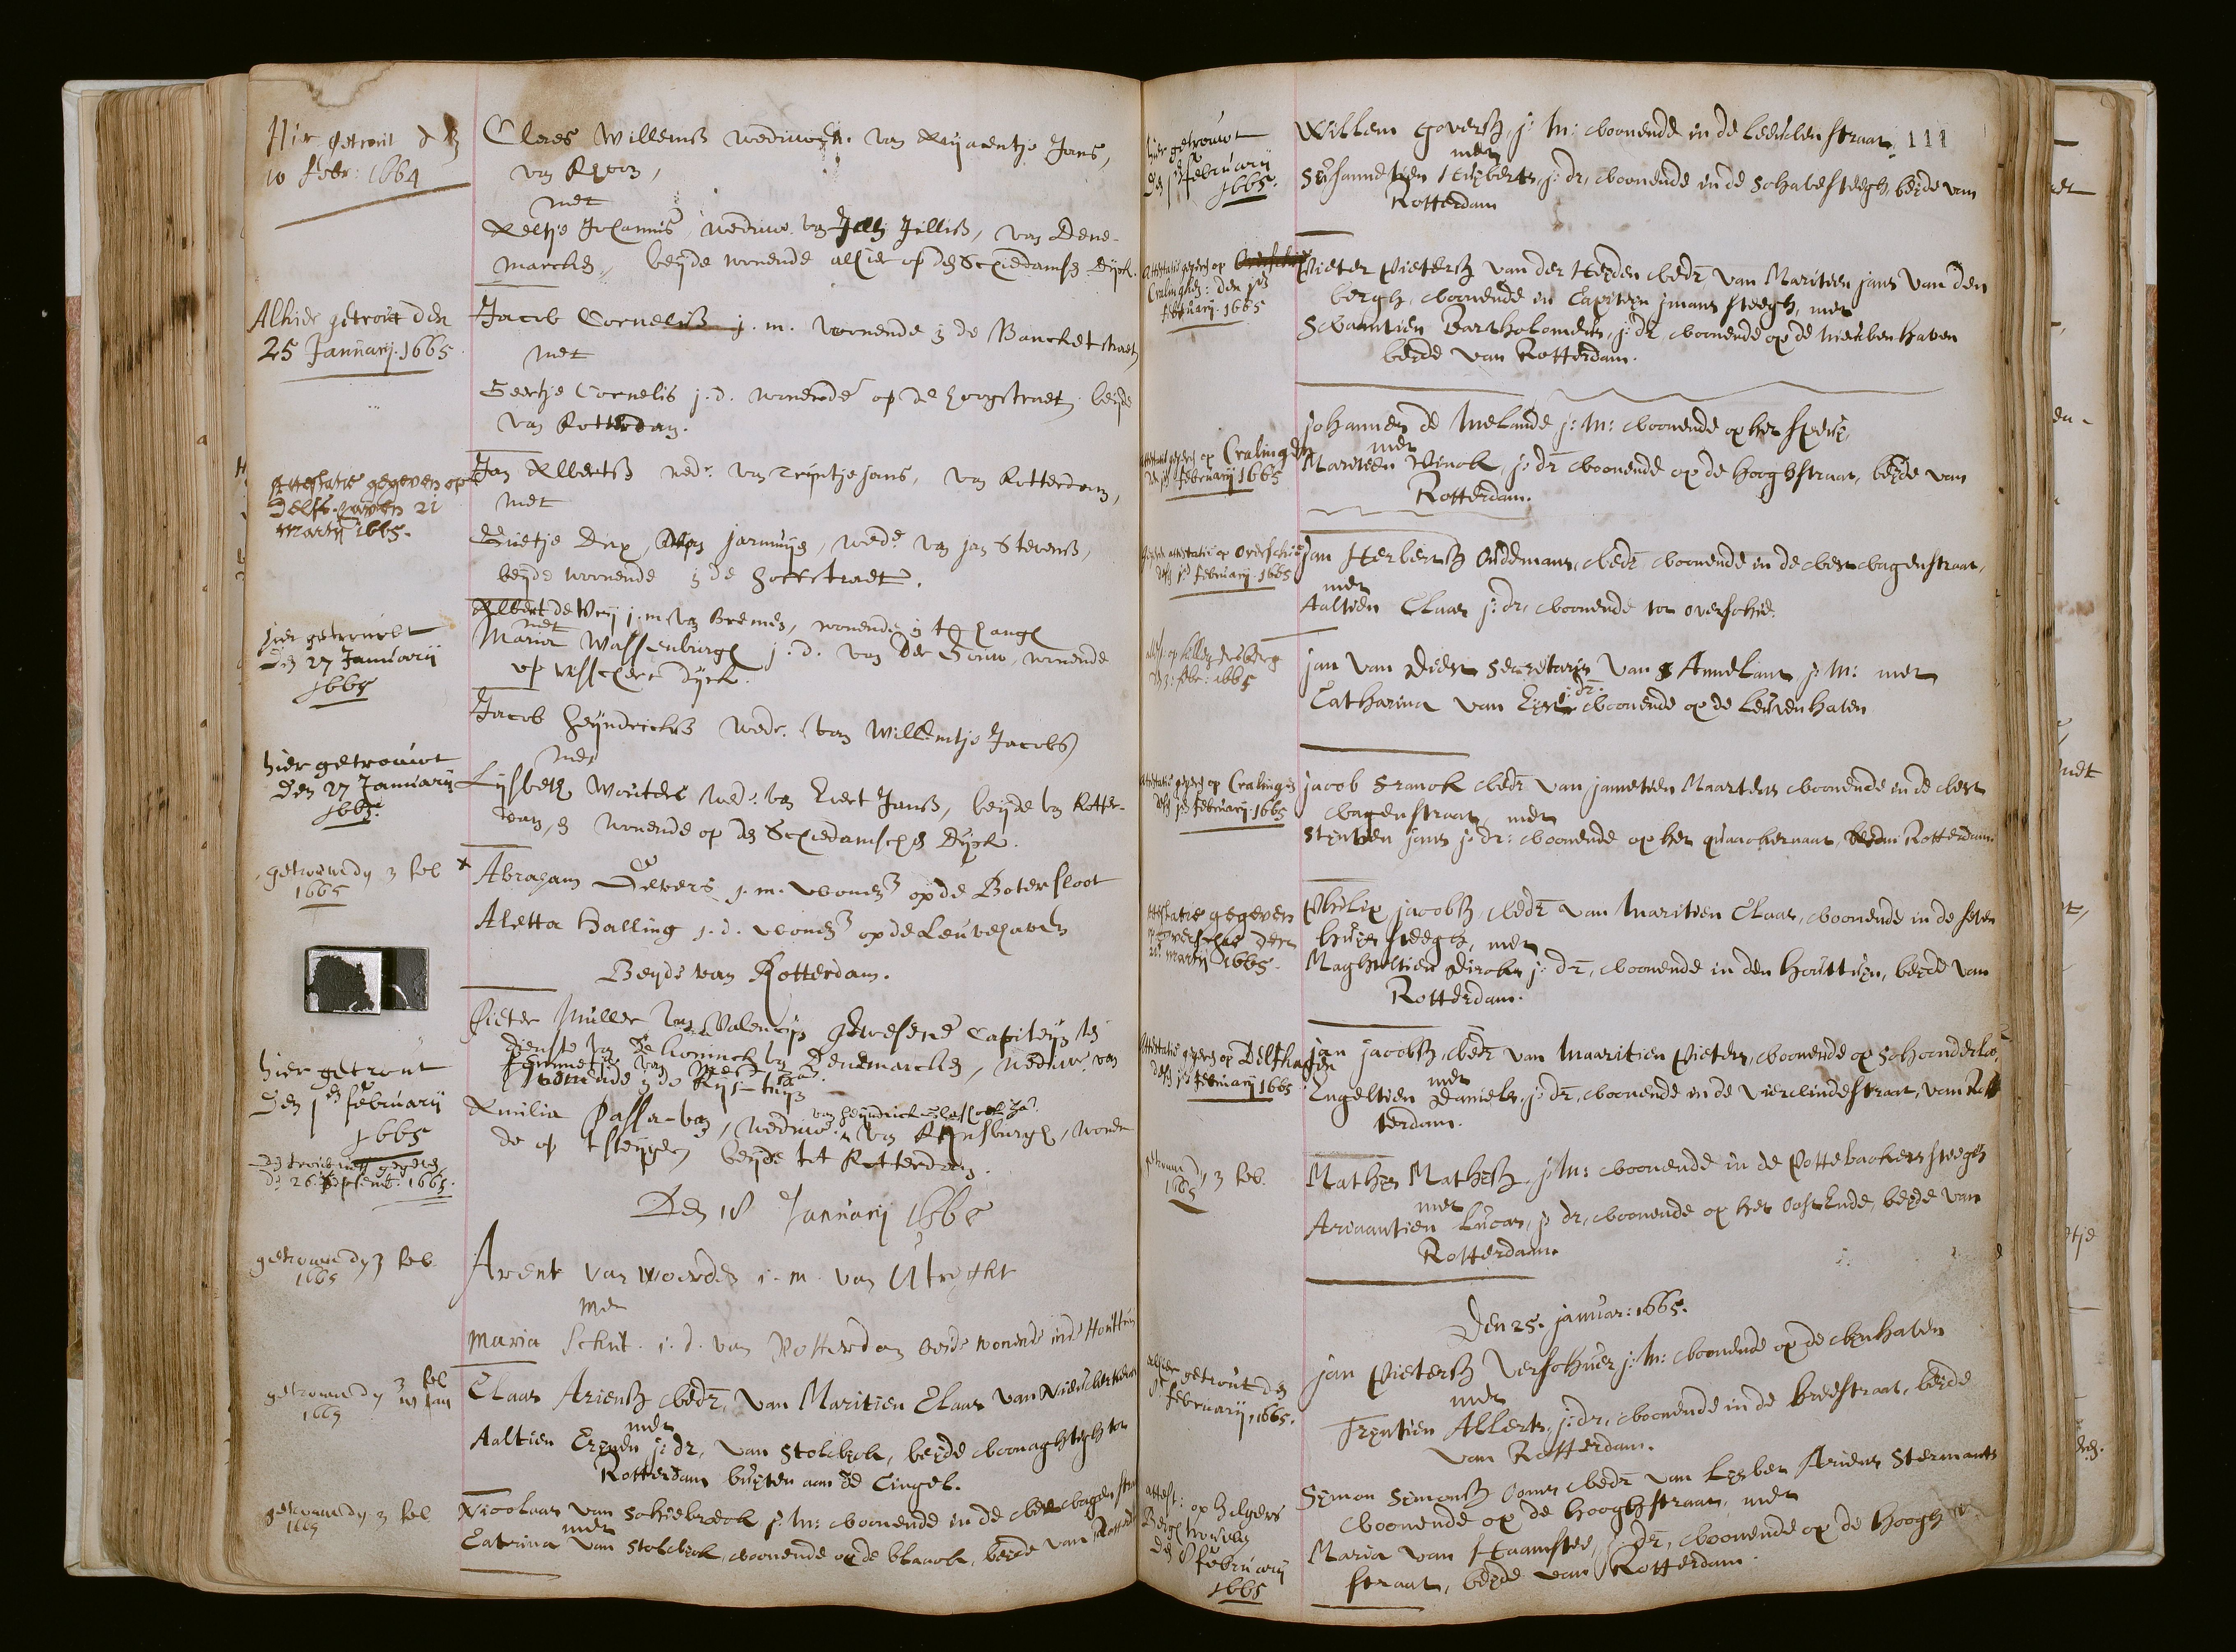 Hier getrout den
10 Febr: 1664
Claes Willemsz weduwer van Ariaentje Jans,
van
met
Neeltje Johannis, weduwe van Jelis Jillisz, van Dene-
marcken, beyde wonende alhier op den Schiedamsen Dyck.
Alhier getrout den
25 Januarij. 1665.
Jacob Cornelisz j. m. wonende in de Bancketstraet,
met
Geertje Cornelis j. d. wonende op de hoogstraet beyde
van Rotterdam.
Attestatie gegeven op
Delfs-haven 21
Martij 1665.
Jan Albertsz wedr. van Trijntje Jans, van Rotterdam,
met
Grietje Dirx, van Jarmuijen, wede. van Jan Stevensz,
beyde woonende in de
hier getrouwt
Den 27 Januarij
1665
Albert de Vrij j. m. van Bremen, wonende in 't hangh
met
Maria Wassenburgh j. d. van Der Gouw, wonende
op visschers dyck.
hier getrouwt
Den 27 Januarij
1665.
Jacob heyndricksz wedr. van Willemtje Jacobs,
met
Lysbeth Wouters wede. van Evert Jansz, beyde van Rotter-
dam, en wonende op den Schiedamschen Dyck.
getrouwd dy 3 feb
1665
Abraham Gevers j. m. woonend op de Botersloot
Aletta Balling j. d. woonend op de Leuvehaven
Beyde van Rotterdam.
hier getrout
Den 1en februarij
1665
gegeven
den 26. septemb. 1665.
Pieter Muller van Valencijn gewesene capiteyn ten
dienste van de koninck van Denemarcken, weduwr. van
wonende in de Rijs-tuyn
van heyndrick
Emilia Passa-van, weduwe van Rynsburgh, wonen-
de op t steyger, beyde tot Rotterdam.
Den 18 Januarij 1665
getrouwd dy 3 feb.
1665
Arent van Woerden j. m. van Utreght
met
Maria Schut. j. d. van Rotterdam beide wonende inde Houttuin
getrouwd dy 3 feb
1665
Claas Ariensz wedr. van Maritien Claas van Nieuwerkerk
met
Aaltien Crynen j: dr, van Stolwyck, beyde woonaghtigh tot
Rotterdam buyten aan de Cingel.
getrouwd dy 3 feb
1665
Nicolaas van Schiebroek j: m: woonende in de west wagen straat
met
Catrina van Stolwyck, woonende op de blaack, beyde van Rotterd
111
hier getrouwt
Den 1en februarij
1665.
Willem Goversz, j: m: woonende in de Leeuwen straat,
met
Susannetien Huyberts, j: dr, woonende in de Schavesteegh, beyde van
Rotterdam
Attestatie gegeven op
Cralingen: den 1en
februarij. 1665
Pieter Pietersz van der Heyden wedr van Maritien jans van den
bergh, woonende in Capiteyn jmans steegh, met
Swaantien Bartholomeus, j: dr, woonende op de nieuwen haven
beyde van Rotterdam.
Attestatie gegeven op Cralingen
den 1en februarij 1665
johannes de Melande j: m: woonende op het speuy,
met
Maritien Vinck, j: dr woonende op de hooghstraat, beyde van
Rotterdam.
Gegeven attestatie op Overschie
desen 1en februarij 1665
jan Herbertsz Oudemans, wedr woonende in de west wagenstraat,
met
Aaltien Claas j: dr, woonende tot overschie.
att: op hillegersberg
den 3: febr: 1665
jan van Diest secretaris van S Annelant j: m: met
Catharina van Eyst j: dr: woonende op de Leuvenhaven
Attestatie gegeven op Cralingen
desen 1en februarij 1665
jacob Franck wedr van jannetien Maartens woonende in de west
wagenstraat, met
Styntien jans j: dr: woonende op het quackernaat, beyde van Rotterdam.
Attestatie gegeven
op overschie den
21 martij 1665.
Philip jacobsz wedr van Maritien Claas, woonende in de seven
huys steegh, met
Maghteltien Dircks j: dr, woonende in den houttuyn, beyde van
Rotterdam.
Attestatie gegeven op Delfshaven
desen 1en februarij 1665
jan jacobsz wedr van Maaritien Pieters, woonende op Schoonderloo,
met
Engeltien Daniels, j: dr, woonende in de Vierwindestraat, van Rot
terdam.
getrouwd dy 3 feb.
1665
Mathys Mathysz j: m: woonende in de Pottebackerssteegh
met
Ariaantien Lucas, j: dr, woonende op het Oost Ende, beyde van
Rotterdam.
Den 25. januar: 1665.
alhier getrout den
8 februarij, 1665.
jan Pietersz Verschuer j: m: woonende op de wynhaven
met
Tryntien Allerts, j: dr, woonende in de breestraat, beyde
van Rotterdam.
attest: op hilgers
Bergh
den 8 februarij
1665
Symon Symonsz Ooms wedr van Lysbet Ariens Stermants
woonende op de hooghstraat, met
Maria van Haamstee, j: dr, woonende op de hoogh
straat, beyde van Rotterdam.